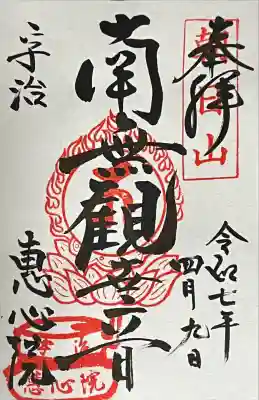 奉拝
朝日山
令和七年
四月九日
南無観世音
宇治
恵心院
宇治
恵心院